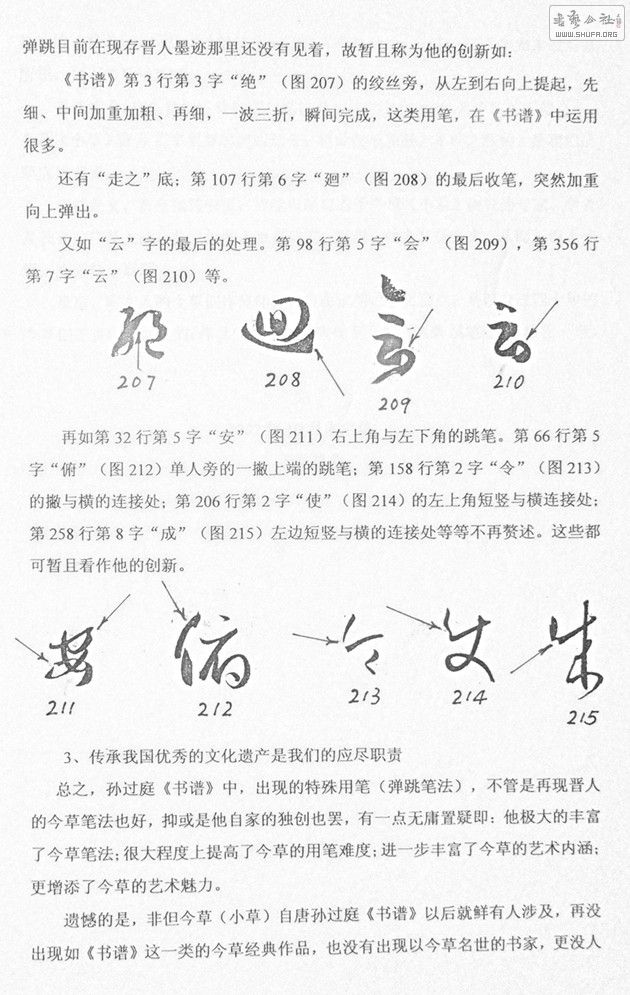 書艺公社
WWW.SHUFA.ORG
弹跳目前在现存晋人墨迹那里还没有见着，故暂且称为他的创新如：
《书谱》第 3 行第 3 字“绝”（图 207）的绞丝旁，从左到右向上提起，先
细、中间加重加粗、再细，一波三折，瞬间完成，这类用笔，在《书谱》中运用
很多。
还有“走之”底；第 107 行第 6 字“廻”（图 208）的最后收笔，突然加重
向上弹出。
又如“云”字的最后的处理。第 98 行第 5 字“会”（图 209），第 356 行
第 7 字“云”（图 210）等。
207 208 209 210
再如第 32 行第 5 字“安”（图 211）右上角与左下角的跳笔。第 66 行第 5
字“俯”（图 212）单人旁的一撇上端的跳笔；第 158 行第 2 字“令”（图 213）
的撇与横的连接处；第 206 行第 2 字“使”（图 214）的左上角短竖与横连接处；
第 258 行第 8 字“成”（图 215）左边短竖与横的连接处等等不再赘述。这些都
可暂且看作他的创新。
安 俯 令
211 212 213 214 215
3、传承我国优秀的文化遗产是我们的应尽职责
总之，孙过庭《书谱》中，出现的特殊用笔（弹跳笔法），不管是再现晋人
的今草笔法也好，抑或是他自家的独创也罢，有一点无庸置疑即：他极大的丰富
了今草笔法；很大程度上提高了今草的用笔难度；进一步丰富了今草的艺术内涵；
更增添了今草的艺术魅力。
遗憾的是，非但今草（小草）自唐孙过庭《书谱》以后就鲜有人涉及，再没
出现如《书谱》这一类的今草经典作品，也没有出现以今草名世的书家，更没人